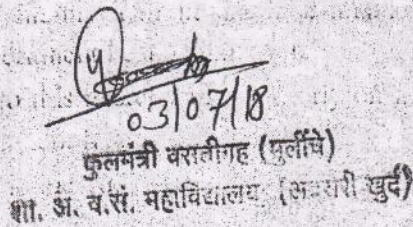 03/07/18
फुलमंत्री वसतीगृह (मुलींचे)
शा. अ. व.सं. महाविद्यालय, (अवसरी खुर्द)